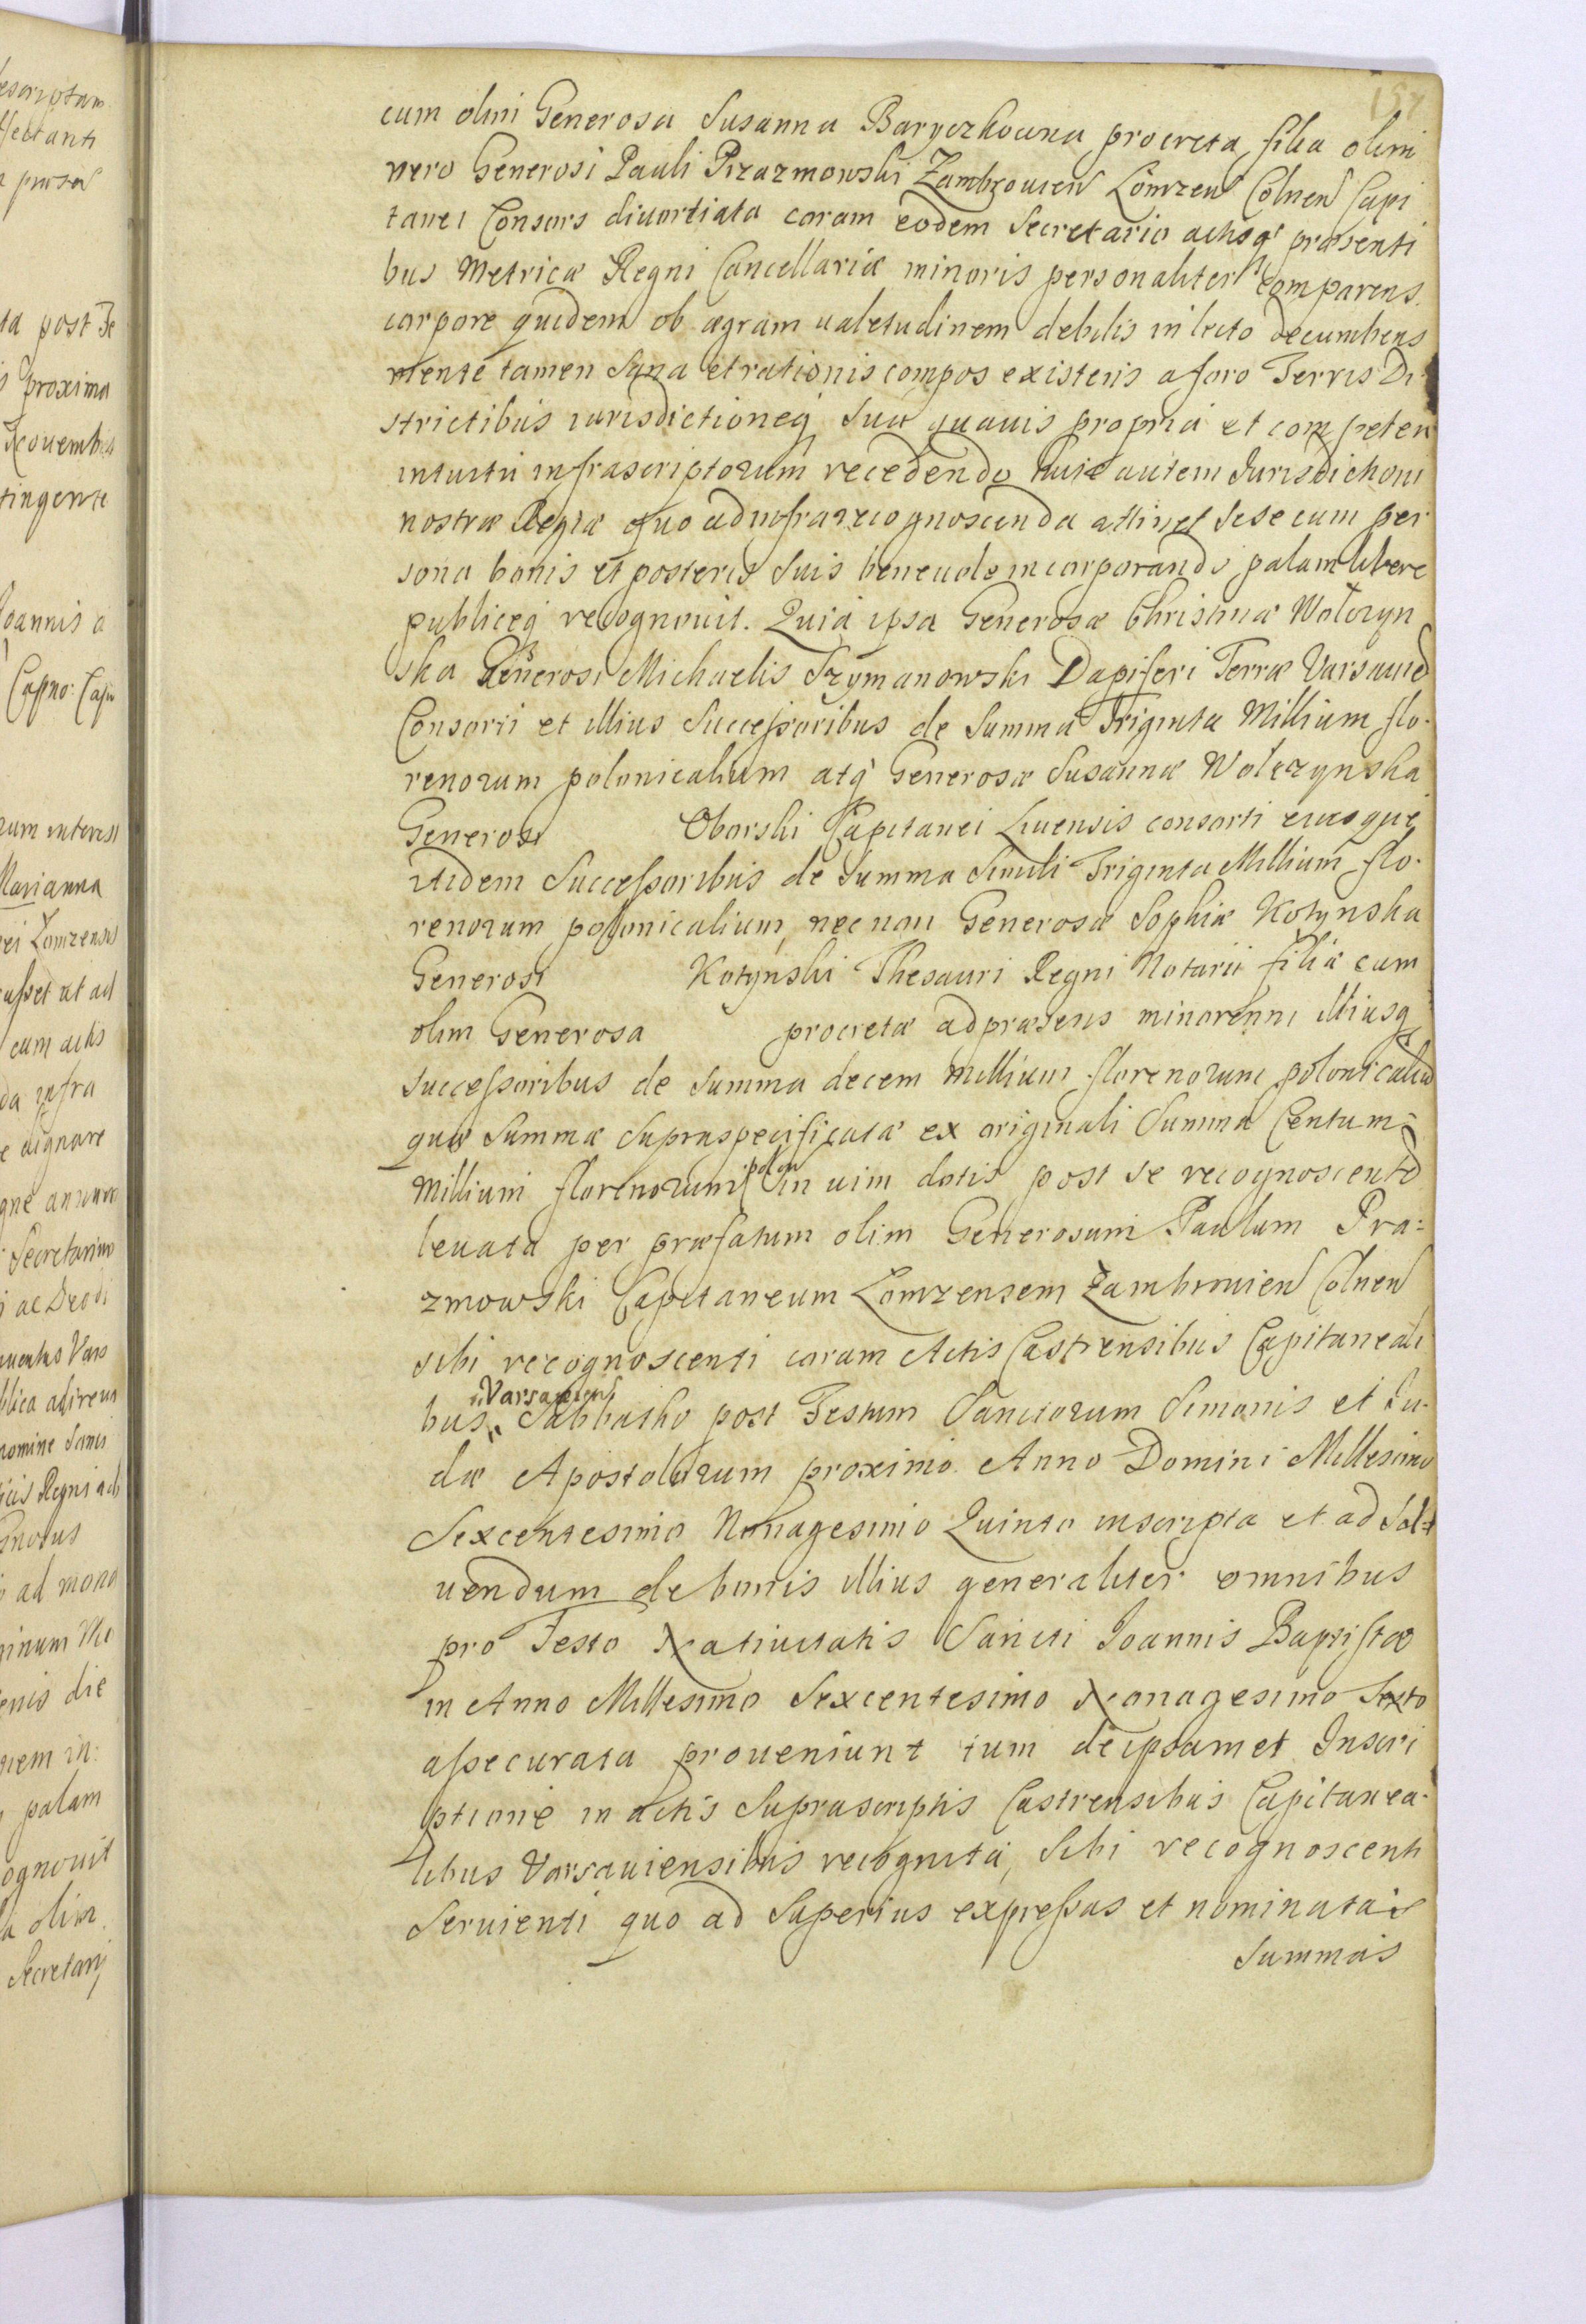 157
cum olim Generosa Susanna Baryczkowna procreta filia olim
vero Generosi Pauli Prazmowski Zambrouien Lomzen Colnen Capi
tanei Consors diuortiata coram eodem Secretario actisq præsenti
bus Metricæ Regni Cancellariæ minoris personaliter comparens
corpore quidem ob ægram ualetudinem debilis in lecto decumbens
mente tamen sana et rationis compos existens a foro Terris Di
strictibus iurisdictioneq sua quauis propria et competen
intuitu infrascriptorum recedendo huic autem Jurisdictioni
nostræ Regiæ quo ad infra recognoscenda attinet sese cum per
sona bonis et posteris suis beneuole incorporando palam libere
publiceq recognouit. Quia ipsa Generosæ Christinæ Wołczyn
ska Generosi Michaelis Szymanowski Dapiferi Terræ Varsauien
Consorti et illius Successoribus de Summa Triginta Millium flo-
renorum polonicalium atq Generosæ Susannæ Wołczynska
Generosi Oborski Capitanei Liuensis consorti eiusque
itidem Successoribus de Summa simili Triginta Millium flo-
renorum polonicalium, nec non Generosæ Sophiæ Kotynska
Generosi Kotynski Thesauri Regni Notarii filiæ cum
olim Generosa procretæ ad præsens minorenni illiusq
successoribus de summa decem millium florenorum polonicaliu
quæ Summæ supraspecificatæ ex originali Summa Centum
Millium florenorum polon in uim dotis post se recognoscente
leuata per præfatum olim Generosum Paulum Pra=
zmowski Capitaneum Lomzensem Zambrouien Colnen
sibi recognoscenti coram Actis Castrensibus Capitaneali
bus Varsauien Sabbatho post Festum Sanctorum Simonis et Iu-
dæ Apostolorum proximo Anno Domini Millesimo
Sexcentesimo Nonagesimo Quinto inscripta et ad Sol=
uendum de bonis illius generaliter omnibus
pro Festo Natiuitatis Sancti Joannis Baptistæ
in Anno Millesimo Sexcentesimo Nonagesimo Sexto
assecurata proueniunt tum de ipsamet Inscri
ptione in actis Suprascriptis Castrensibus Capitanea-
libus Varsauiensibus recognita, sibi recognoscenti
Seruienti quo ad Superius expressas et nominatas
Summas